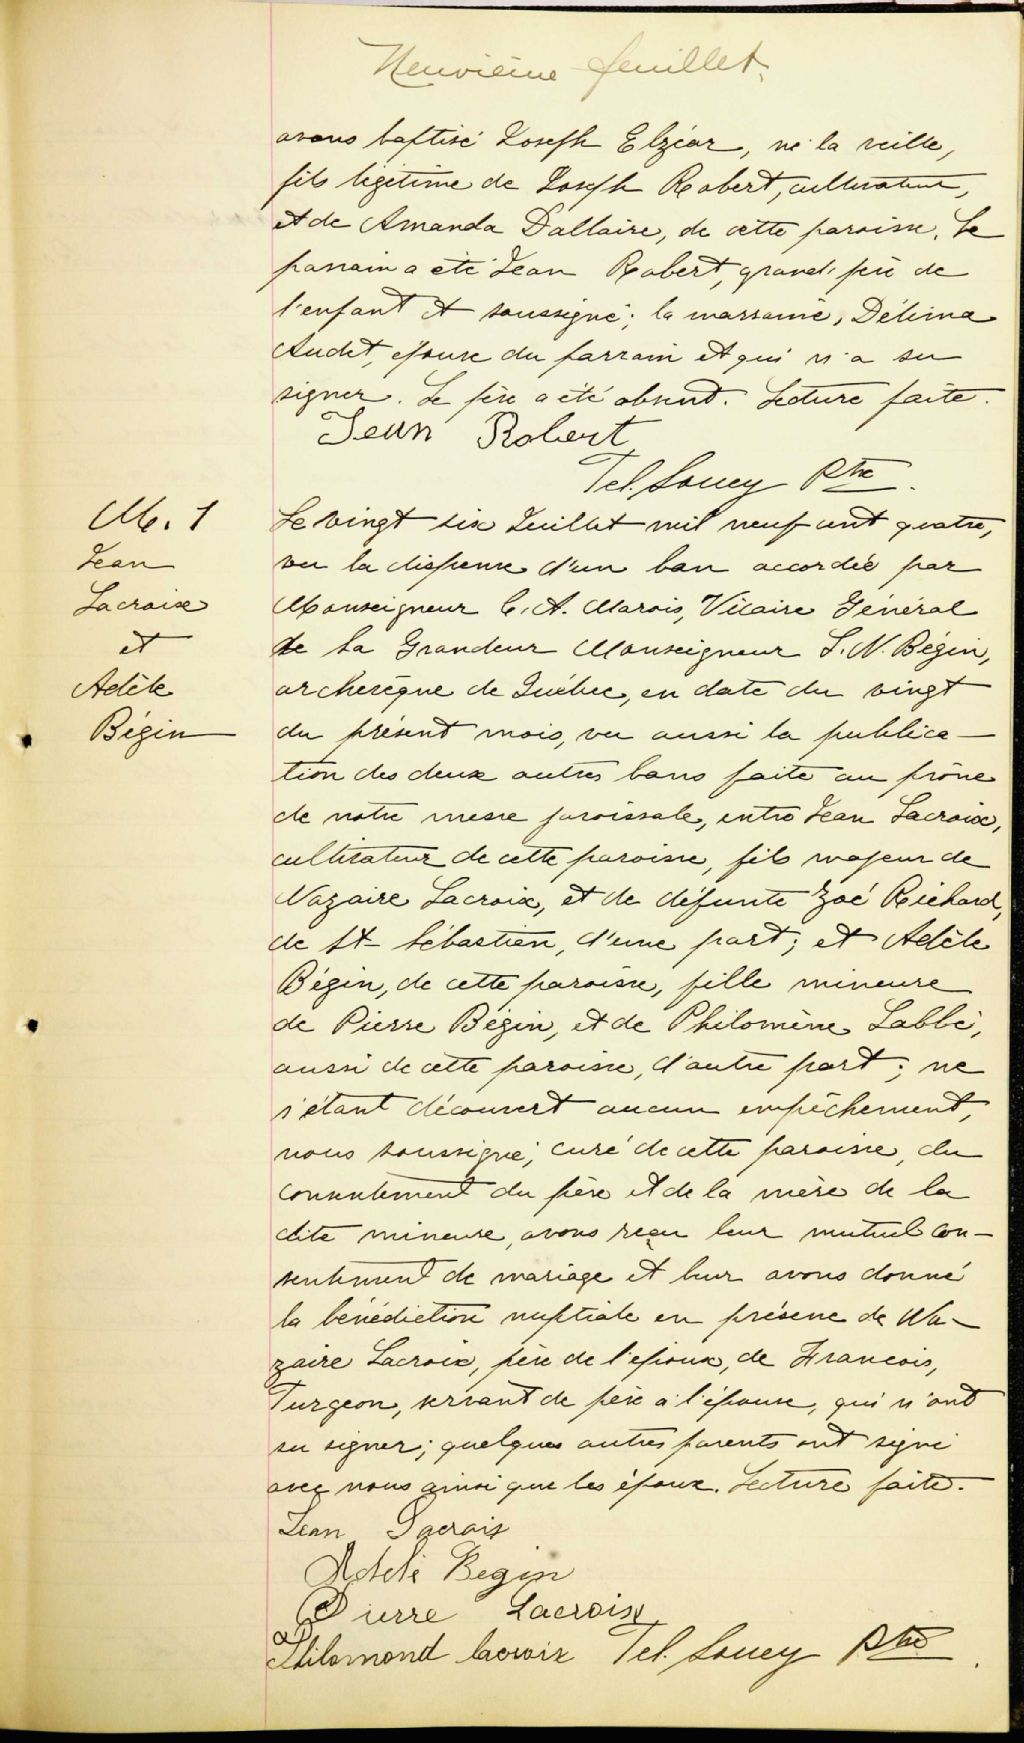 Neuvième feuillet.
avons baptisé Joseph Elzéar, né la veille,
fils légitime de Joseph Robert, cultivateur,
et de Amanda Dallaire, de cette paroisse. Le
parrain a été Jean Robert, grand'père de
l'enfant et soussigné; la marraine, Délima
Audet, épouse du parrain et qui n'a su
signer. Le père a été absent. Lecture faite.
Jean Robert
Tel. Soucy Ptre.
M. 1
Jean
Lacroix
et
Adèle
Bégin
Le vingt six Juillet mil neuf cent quatre,
vu la dispense d'un ban accordée par
Monseigneur C. A. Marois, Vicaire Général
de Sa Grandeur Monseigneur L. N. Bégin,
archevêque de Québec, en date du vingt
du présent mois, vu aussi la publica-
tion des deux autres bans faite au prône
de notre messe paroissale, entre Jean Lacroix,
cultivateur de cette paroisse, fils majeur de
Nazaire Lacroix, et de défunte Zoé Richard,
de St Sébastien, d'une part; et Adèle
Bégin, de cette paroisse, fille mineure
de Pierre Bégin, et de Philomène Labbé,
aussi de cette paroisse, d'autre part; ne
s'étant découvert aucun empêchement,
nous soussigné, curé de cette paroisse, du
consentement du père et de la mère de la
dite mineure, avons reçu leur mutuel con-
sentement de mariage et leur avons donné
la bénédiction nuptiale en présence de Na-
zaire Lacroix, père de l'époux, de Francois,
Turgeon, servant de père à l'épouse, qui n'ont
su signer; quelques autres parents ont signé
avec nous ainsi que les époux. Lecture faite.
Jean Lacroix
Adele Begin
Pierre Lacroix
Philomond lacroix Tel. Soucy Ptre.